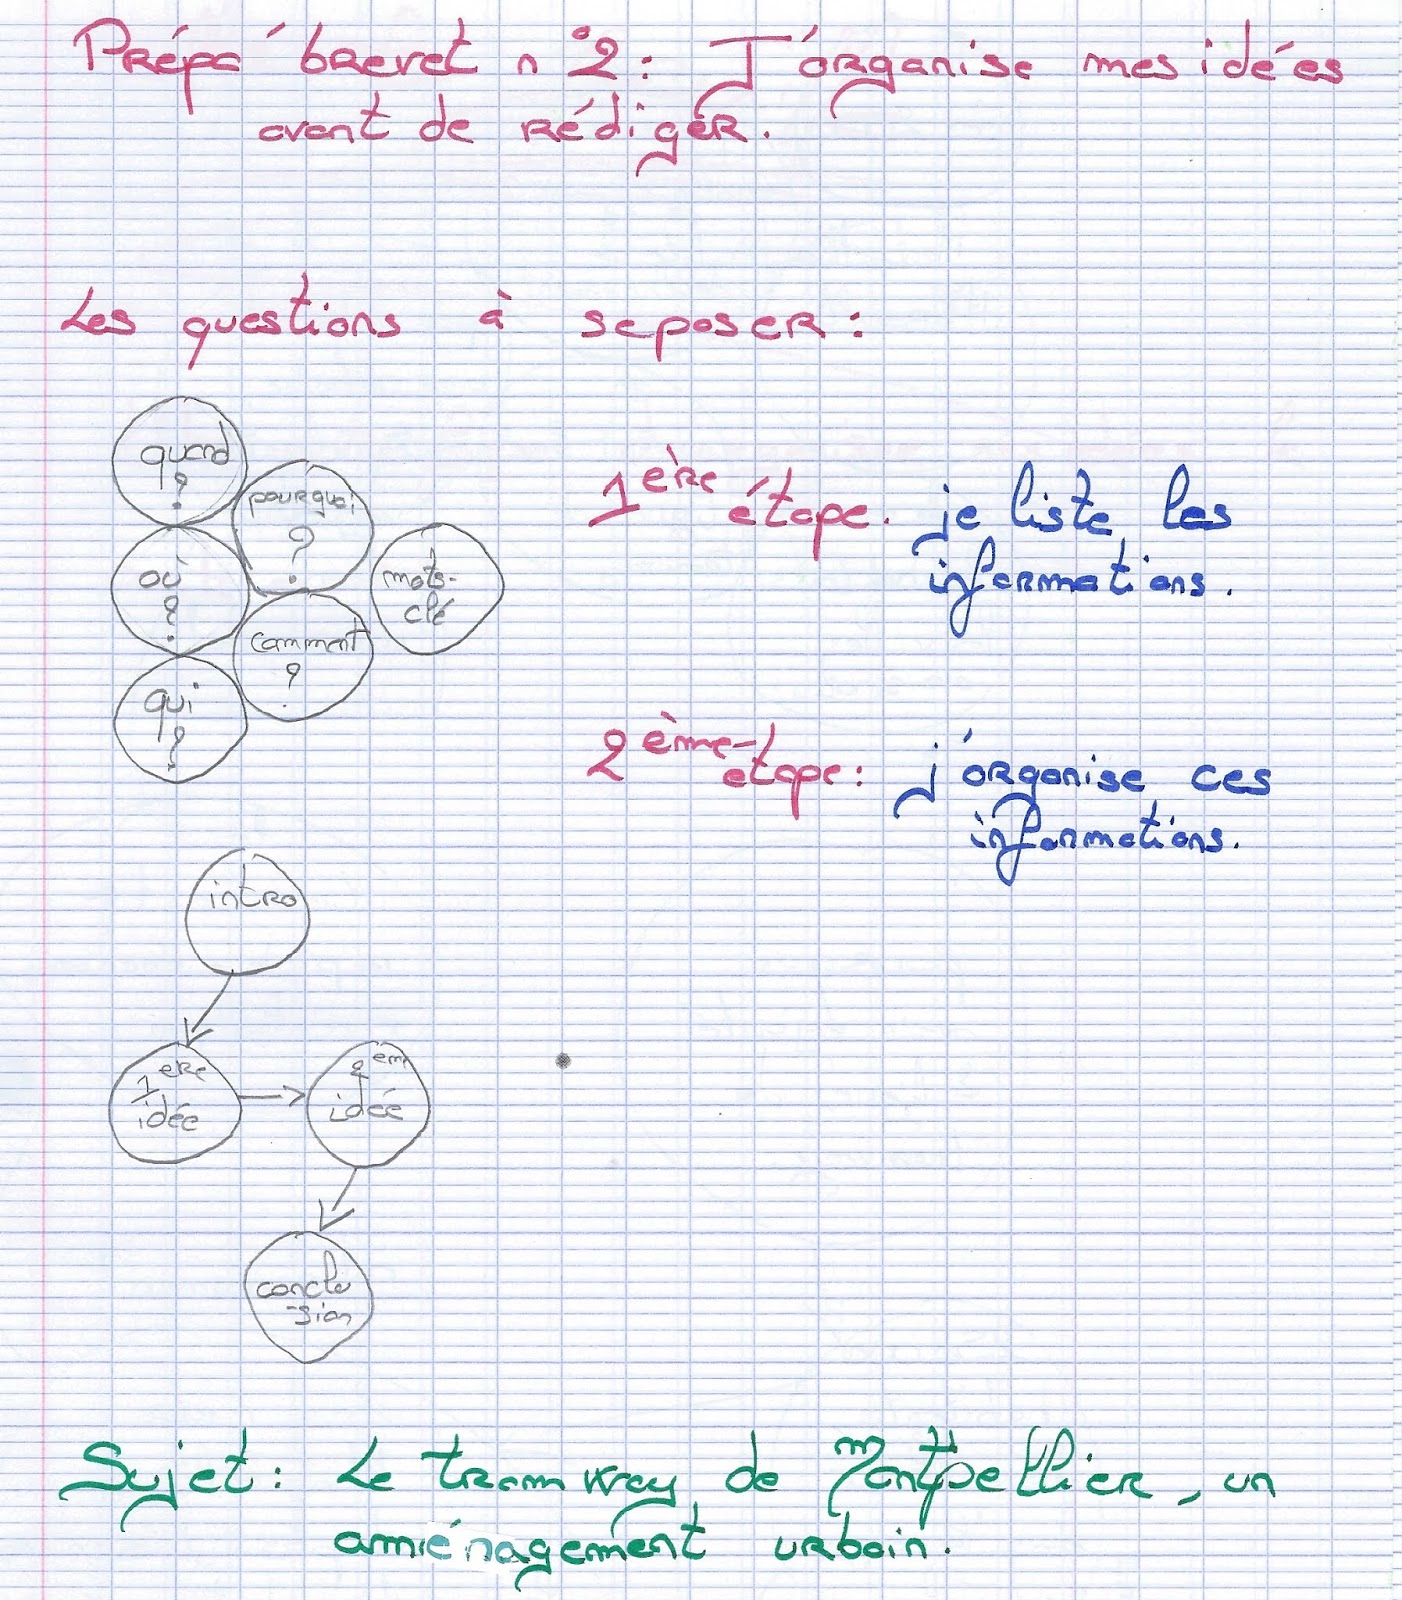 Prépa brevet n°2: J'organise mes idées
avant de rédiger.
Les questions à se poser:
quand
?
pourquoi
?
où
?
mots-
clé
comment
?
qui
?
1ère étape. je liste les
informations.
2ème étape: j'organise ces
informations.
intro
1ere
idée
2em
idée
conclu
-sion
Sujet: Le tramway de Montpellier, un
aménagement urbain.